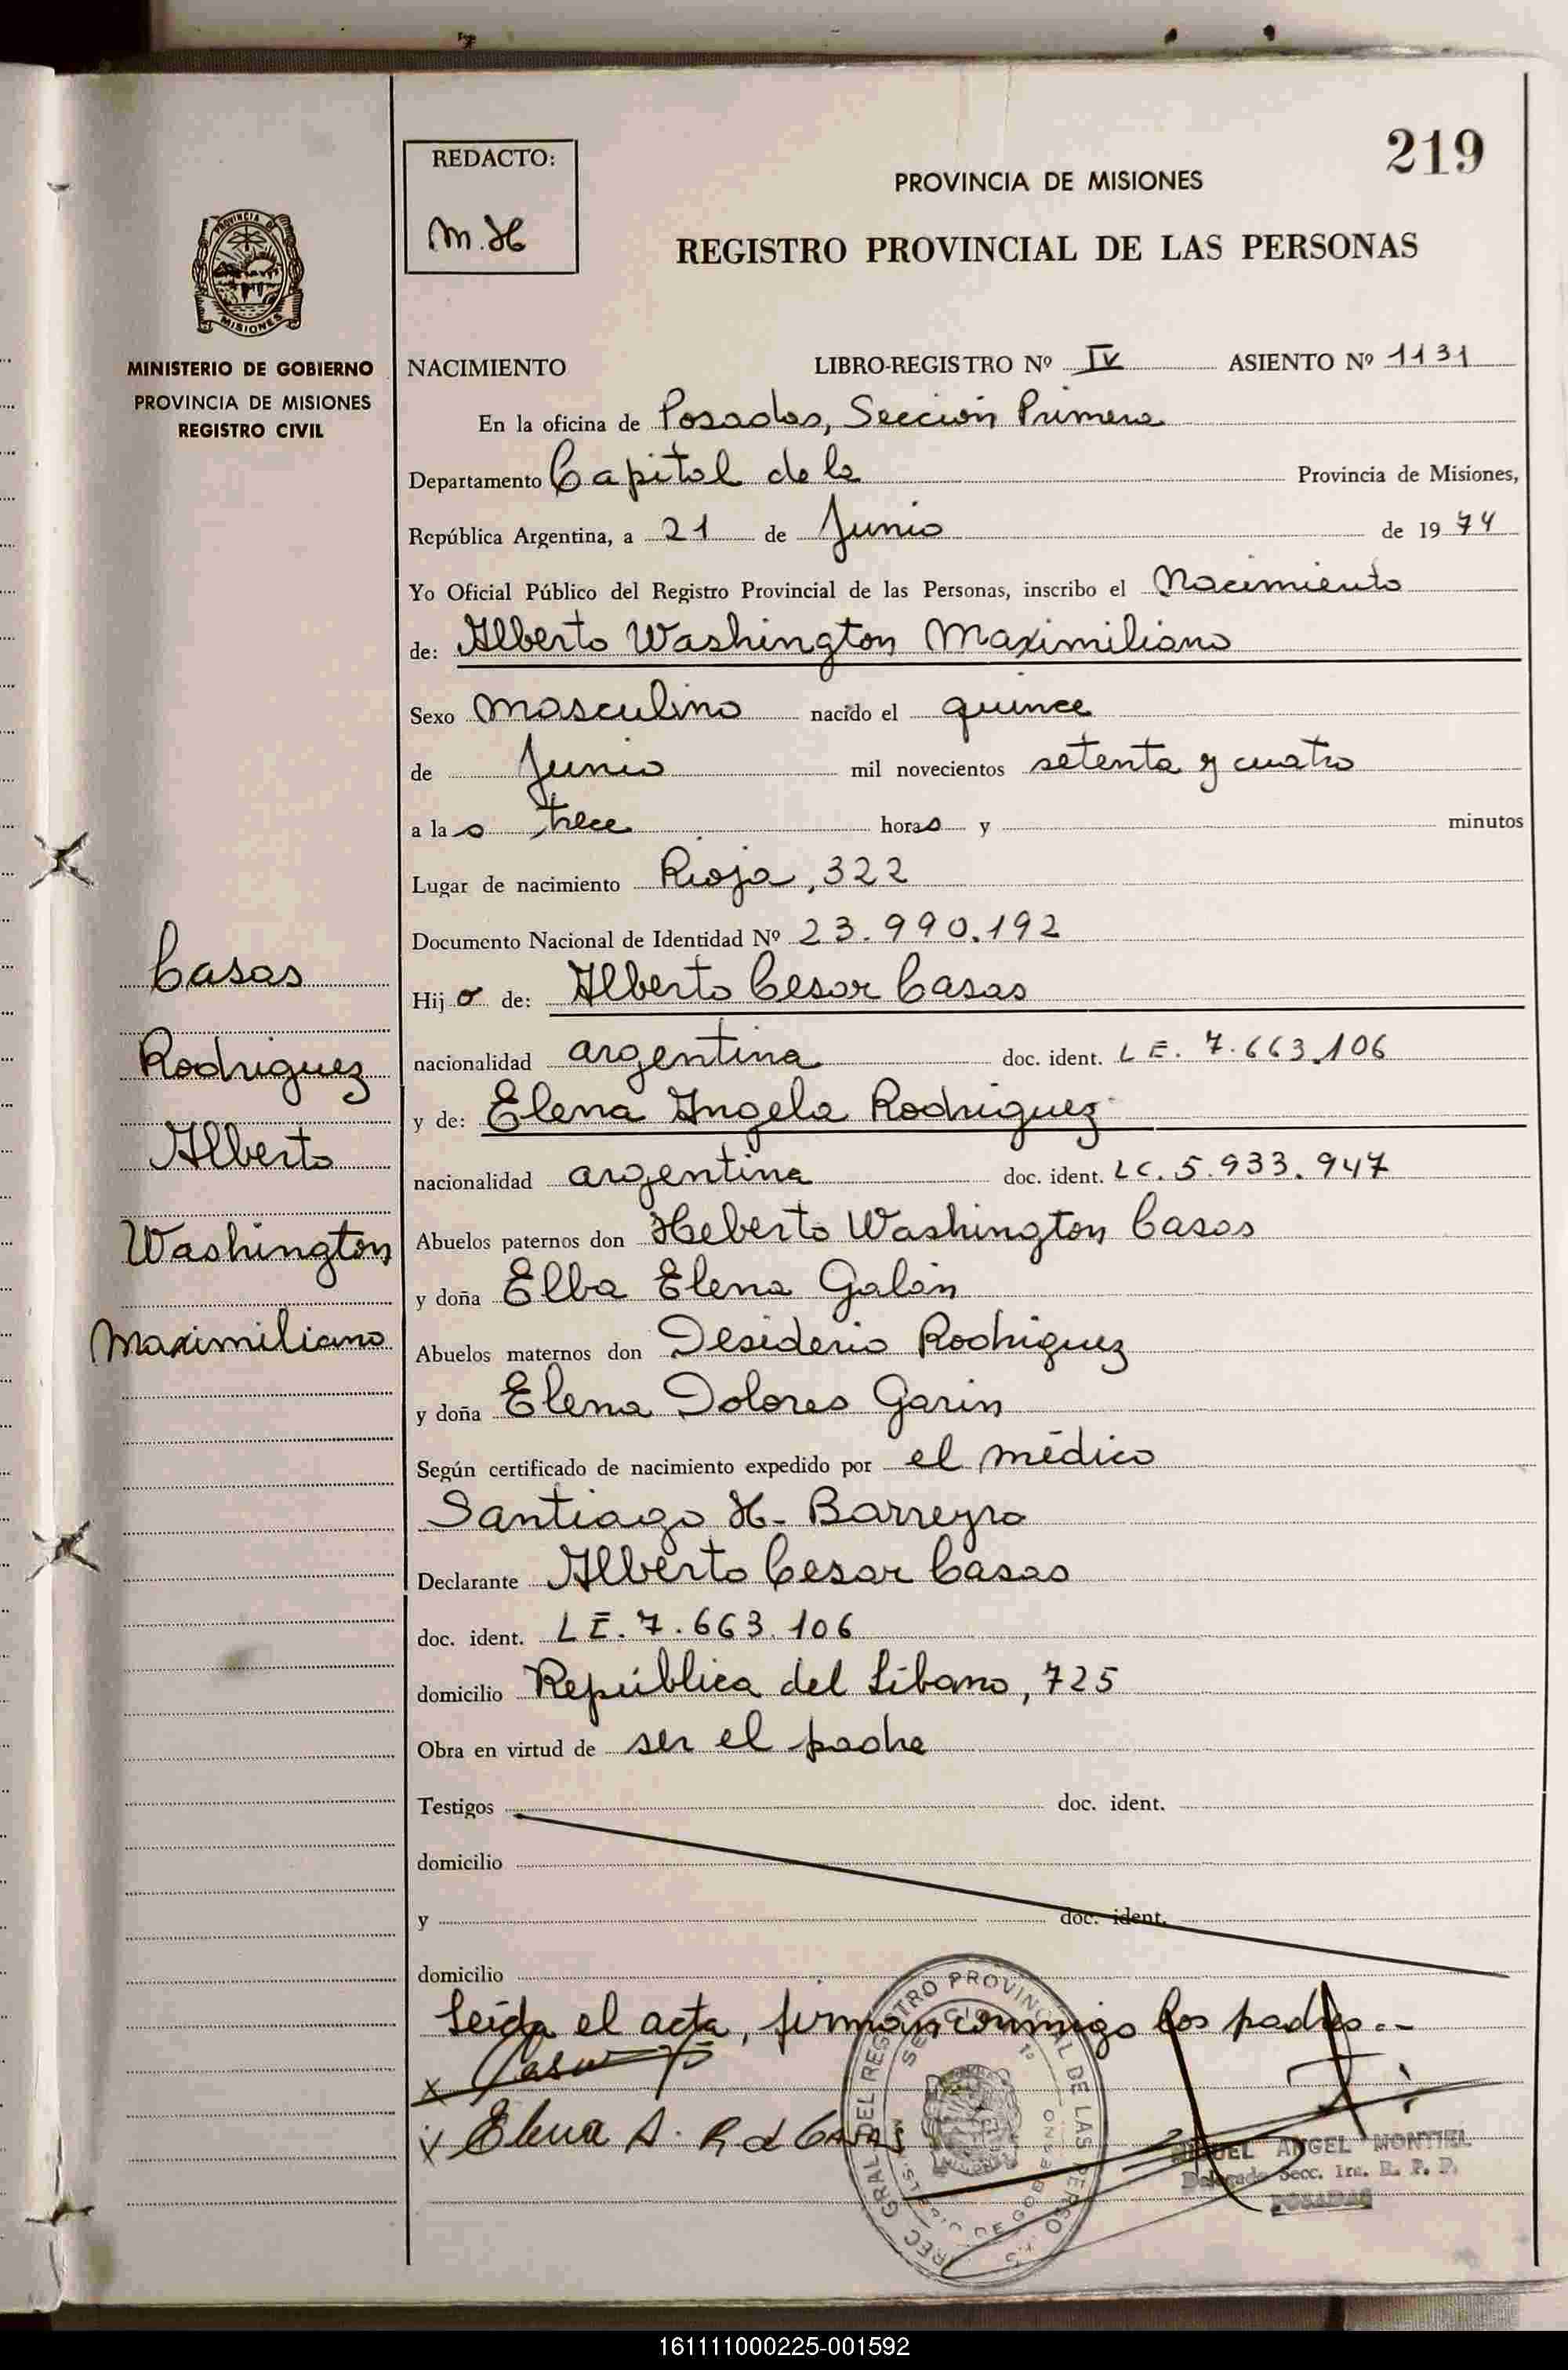 219
REDACTO:
M.H
PROVINCIA DE MISIONES
REGISTRO PROVINCIAL DE LAS PERSONAS
PROVINCIA DE
MISIONES
MINISTERIO DE GOBIERNO
PROVINCIA DE MISIONES
REGISTRO CIVIL
NACIMIENTO LIBRO-REGISTRO Nº IV ASIENTO Nº 1131
En la oficina de Posadas, Sección Primera
Departamento Capital de la Provincia de Misiones,
República Argentina, a 21 de Junio de 1974
Yo Oficial Público del Registro Provincial de las Personas, inscribo el Nacimiento
de: Alberto Washington Maximiliano
Sexo masculino nacido el quince
de Junio mil novecientos setenta y cuatro
a las trece horas y minutos
Lugar de nacimiento Rioja, 322
Documento Nacional de Identidad Nº 23.990.192
Hijo de: Alberto Cesar Casas
nacionalidad argentina doc. ident. LE. 7.663.106
y de: Elena Angela Rodriguez
nacionalidad argentina doc. ident. LC. 5.933.947
Abuelos paternos don Heberto Washington Casas
y doña Elba Elena Galán
Abuelos maternos don Desiderio Rodriguez
y doña Elena Dolores Garin
Según certificado de nacimiento expedido por el médico
Santiago H. Barreyro
Declarante Alberto Cesar Casas
doc. ident. LE. 7.663.106
domicilio República del Líbano, 725
Obra en virtud de ser el padre
Testigos doc. ident.
domicilio
y doc. ident.
domicilio
Leída el acta, firman conmigo los padres.-
x Casas
x Elena A. R d CASAS
MIGUEL ANGEL MONTIEL
Delegado Secc. 1ra. R. P. P.
POSADAS
Casas
Rodriguez
Alberto
Washington
Maximiliano
161111000225-001592